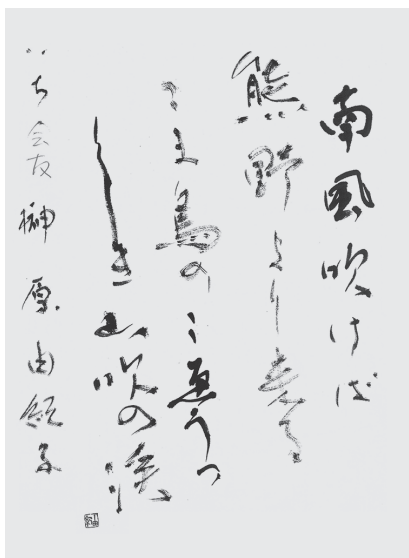 南風吹けば
熊野より来る
こま鳥のこ恵うつ
くしき山吹の渓
いち会友 榊原由